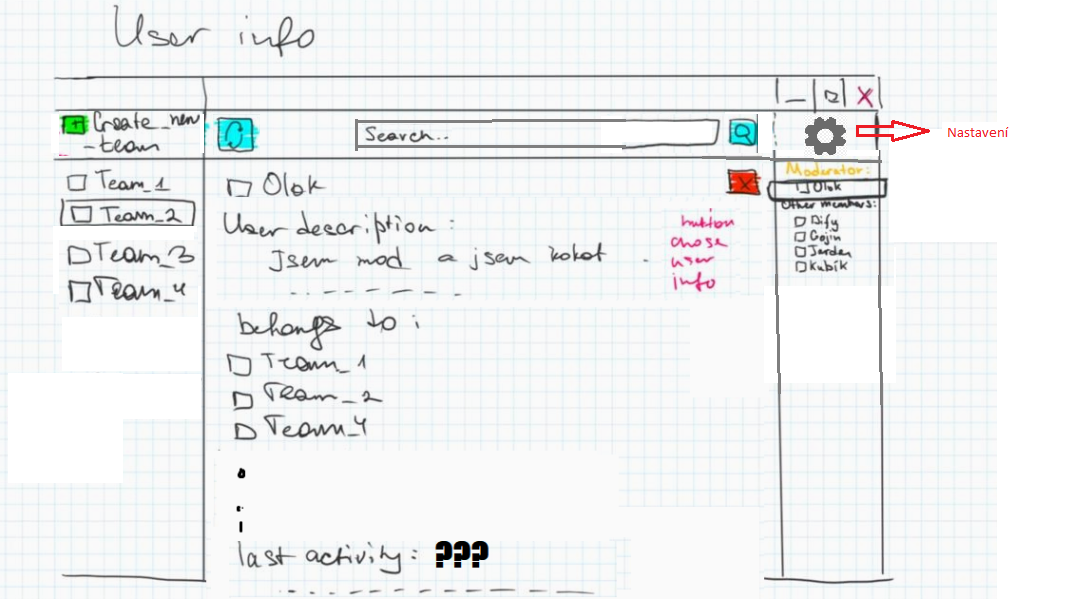 User info
Create_new
-team
Search..
Nastavení
Team_1
Team_2
Team_3
Team_4
Olok
User description:
Jsem mod a jsem kokot
button
chose
user
info
belongs to:
Team_1
Team_2
Team_4
last activity: ???
Moderator:
Olok
Other members:
Dify
Gojin
Jerden
Kubik